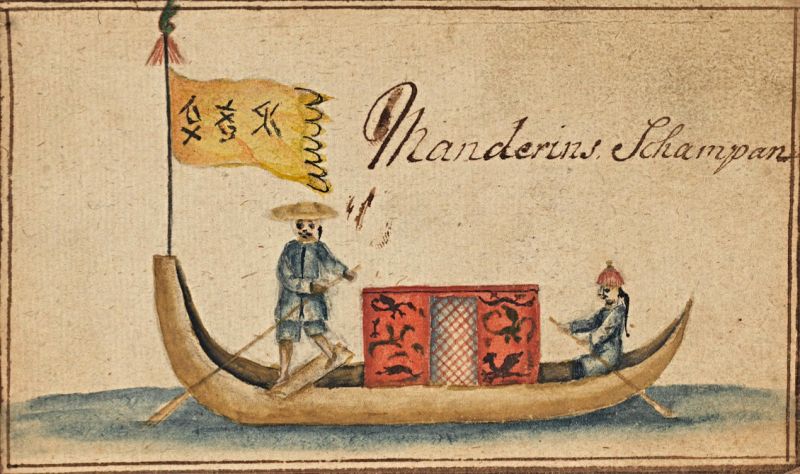 Manderins. Schampan